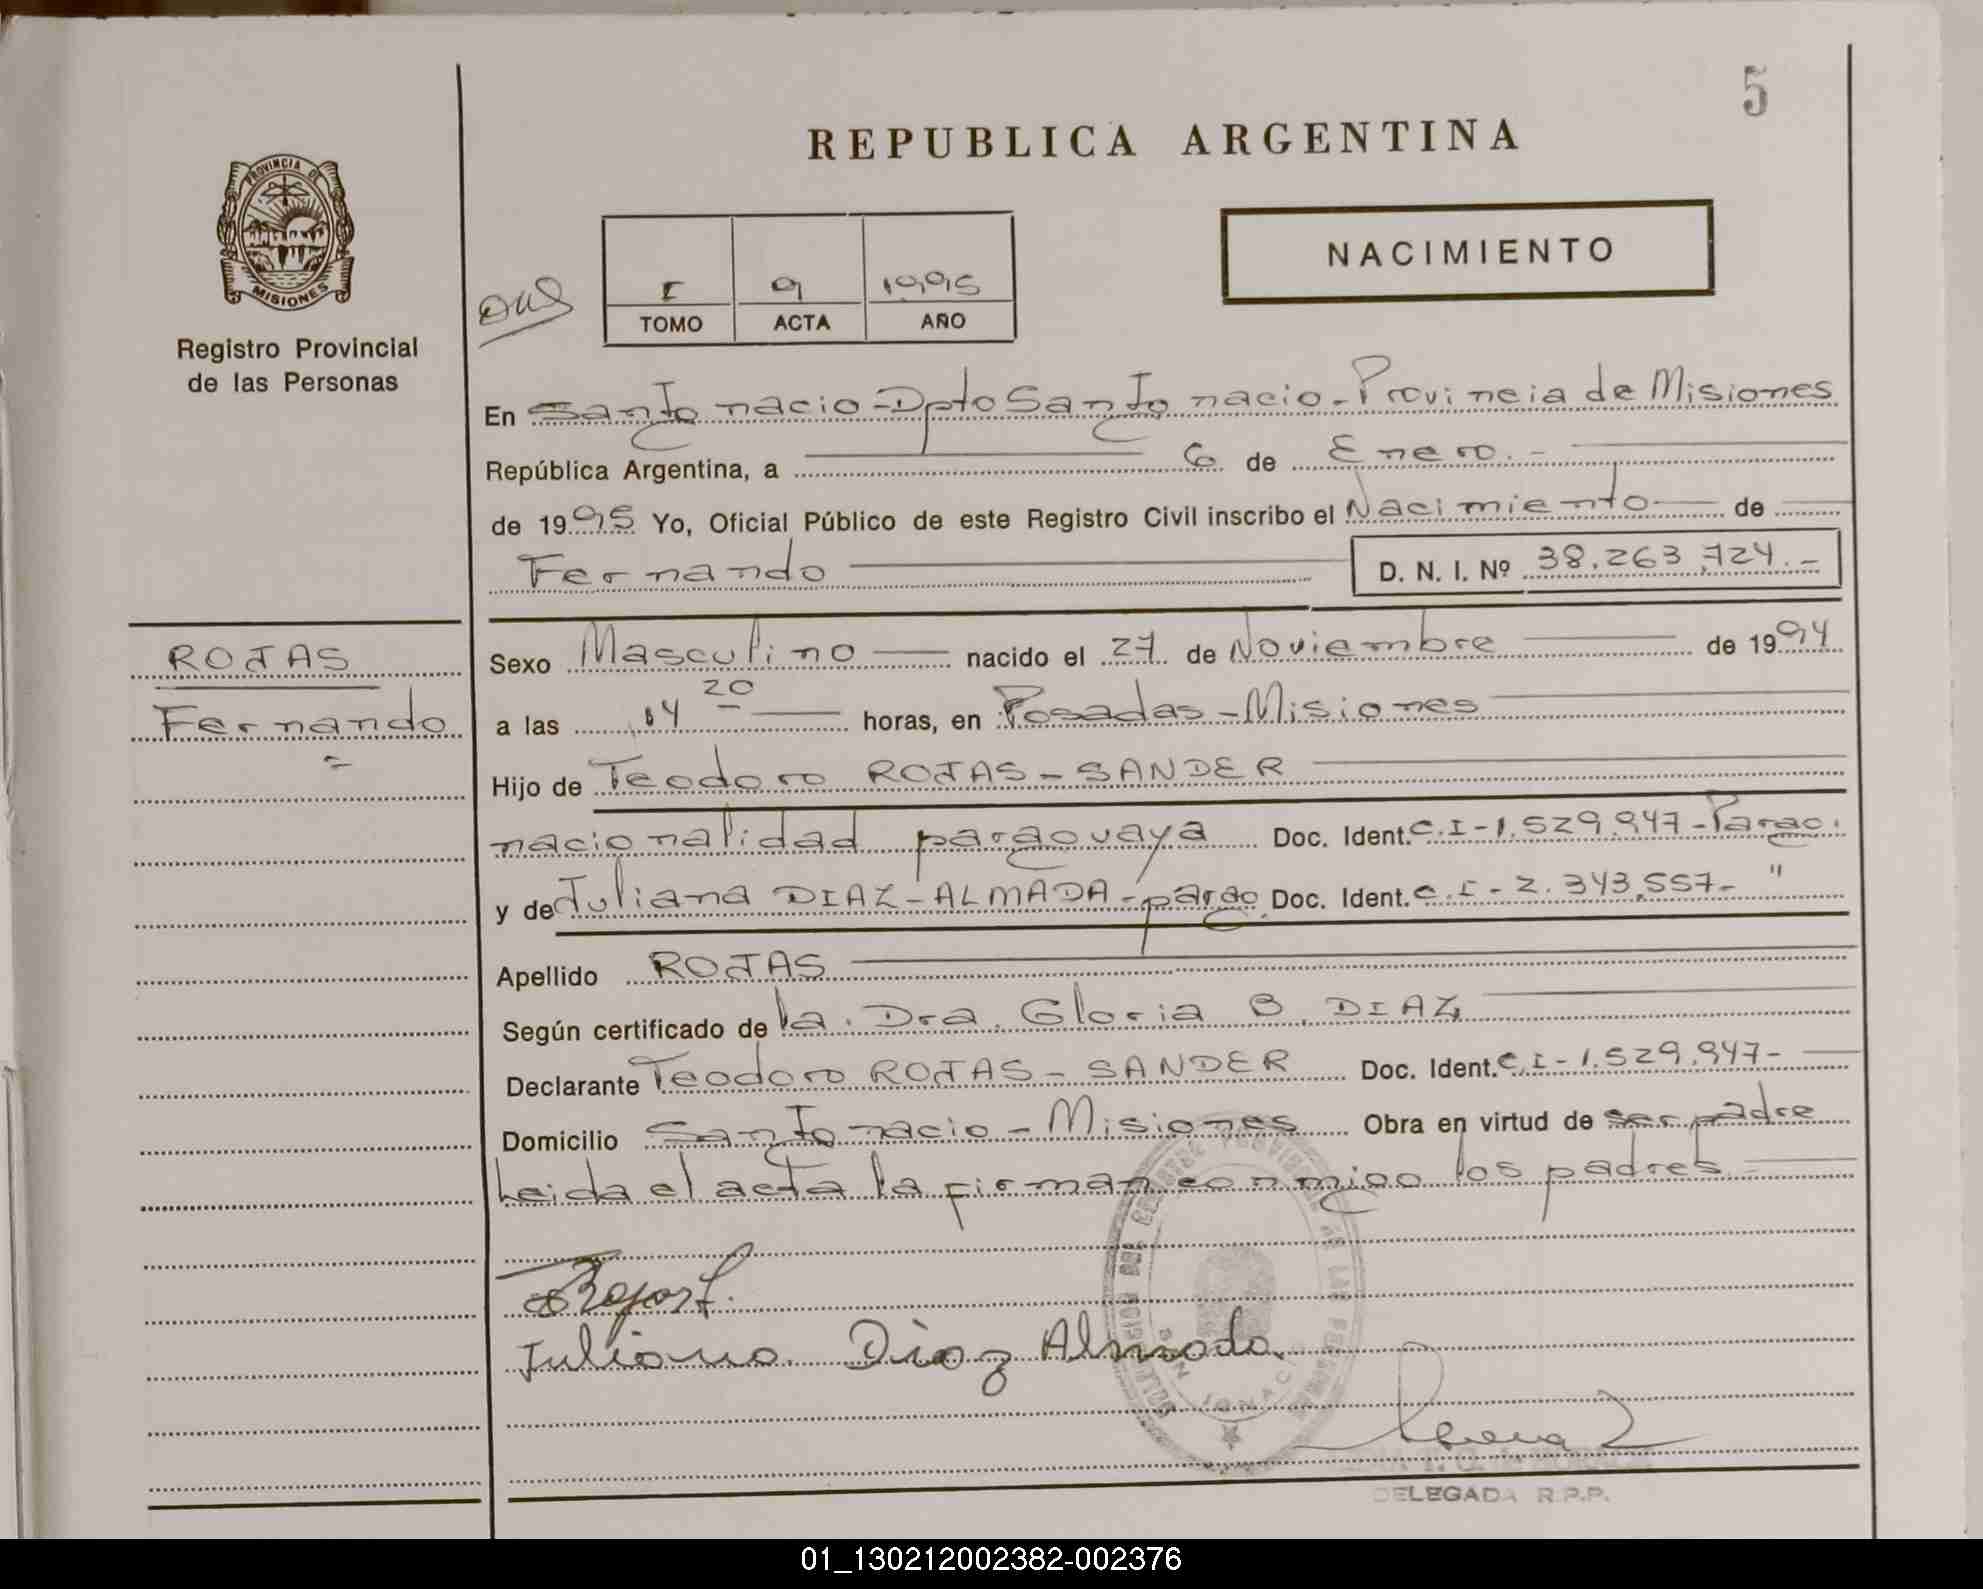 5
REPUBLICA ARGENTINA
PROVINCIA DE
MISIONES
Registro Provincial
de las Personas
NACIMIENTO
I 9 1995
TOMO ACTA AÑO
En San Ignacio - Dpto San Ignacio - Provincia de Misiones
República Argentina, a 6 de Enero.-
de 1995 Yo, Oficial Público de este Registro Civil inscribo el Nacimiento de
Fernando D. N. I. Nº 38.263.724.-
ROJAS
Fernando
Sexo Masculino nacido el 27 de Noviembre de 1994
a las 04 20 horas, en Posadas - Misiones
Hijo de Teodoro ROJAS - SANDER
nacionalidad paraguaya Doc. Ident. C.I - 1.529.947 - Parag.
y de Juliana DIAZ - ALMADA - parag. Doc. Ident. C.I - 2.343.557 - "
Apellido ROJAS
Según certificado de la Dra. Gloria B. DIAZ
Declarante Teodoro ROJAS - SANDER Doc. Ident. C.I - 1.529.947 -
Domicilio San Ignacio - Misiones Obra en virtud de ser padre
Leida el acta la firman conmigo los padres
Juliana Diaz Almada
SAN IGNACIO
DELEGADA R.P.P.
01_130212002382-002376